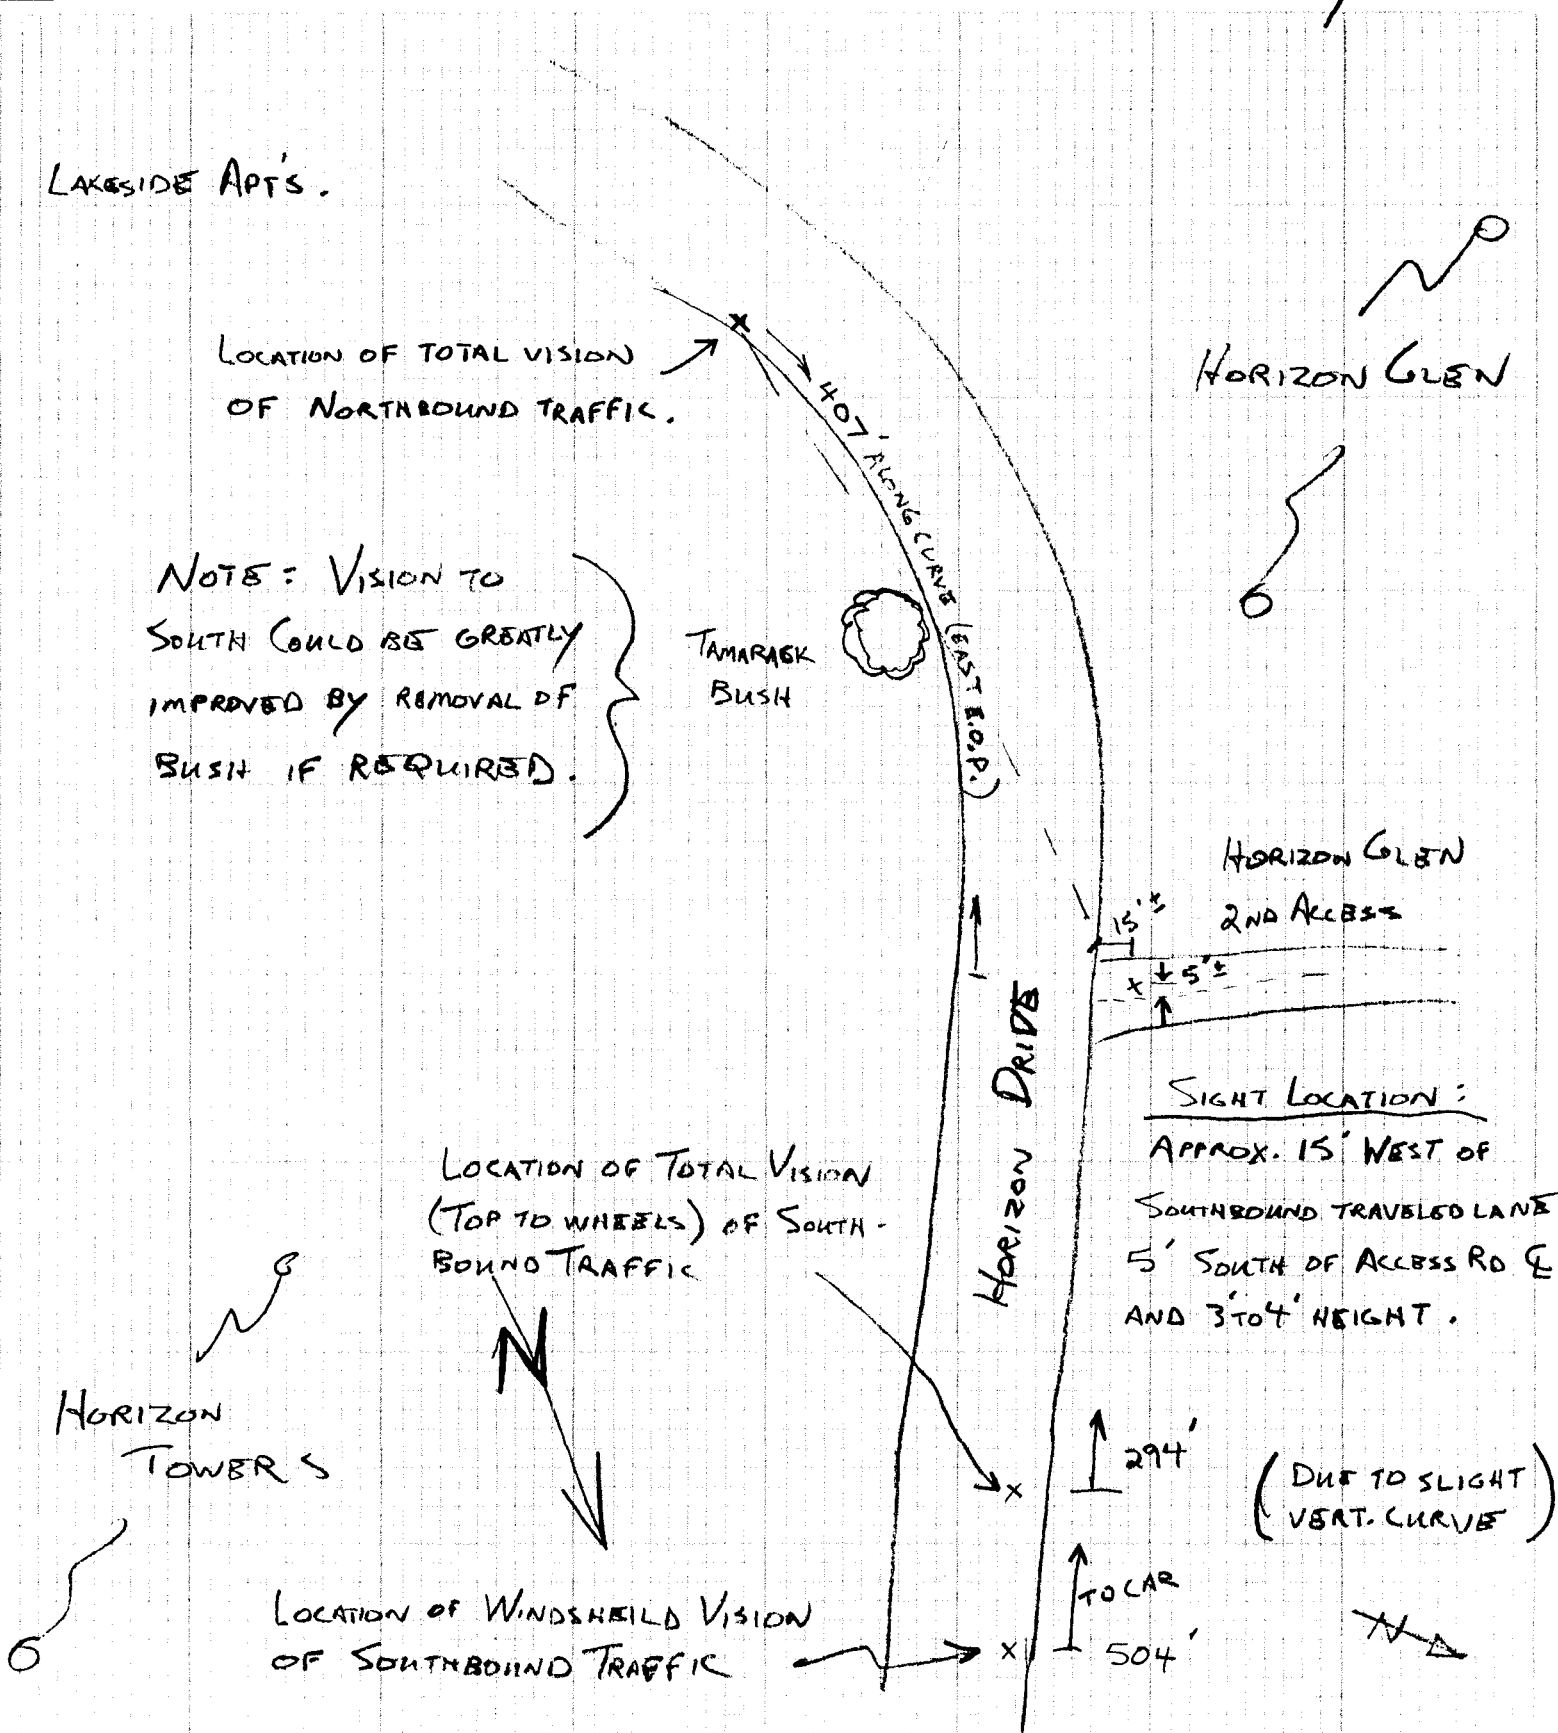 LAKESIDE APT'S.
LOCATION OF TOTAL VISION
OF NORTHBOUND TRAFFIC.
407' ALONG CURVE (EAST E.O.P.)
HORIZON GLEN
NOTE: VISION TO
SOUTH COULD BE GREATLY
IMPROVED BY REMOVAL OF
BUSH IF REQUIRED.
TAMARACK
BUSH
HORIZON GLEN
2ND ACCESS
15'±
5'±
HORIZON DRIVE
SIGHT LOCATION:
APPROX. 15' WEST OF
SOUTHBOUND TRAVELED LANE
5' SOUTH OF ACCESS RD ℄
AND 3' TO 4' HEIGHT.
LOCATION OF TOTAL VISION
(TOP TO WHEELS) OF SOUTH-
BOUND TRAFFIC
N
HORIZON
TOWERS
294'
(DUE TO SLIGHT
VERT. CURVE)
TO CAR
504'
LOCATION OF WINDSHEILD VISION
OF SOUTHBOUND TRAFFIC
N